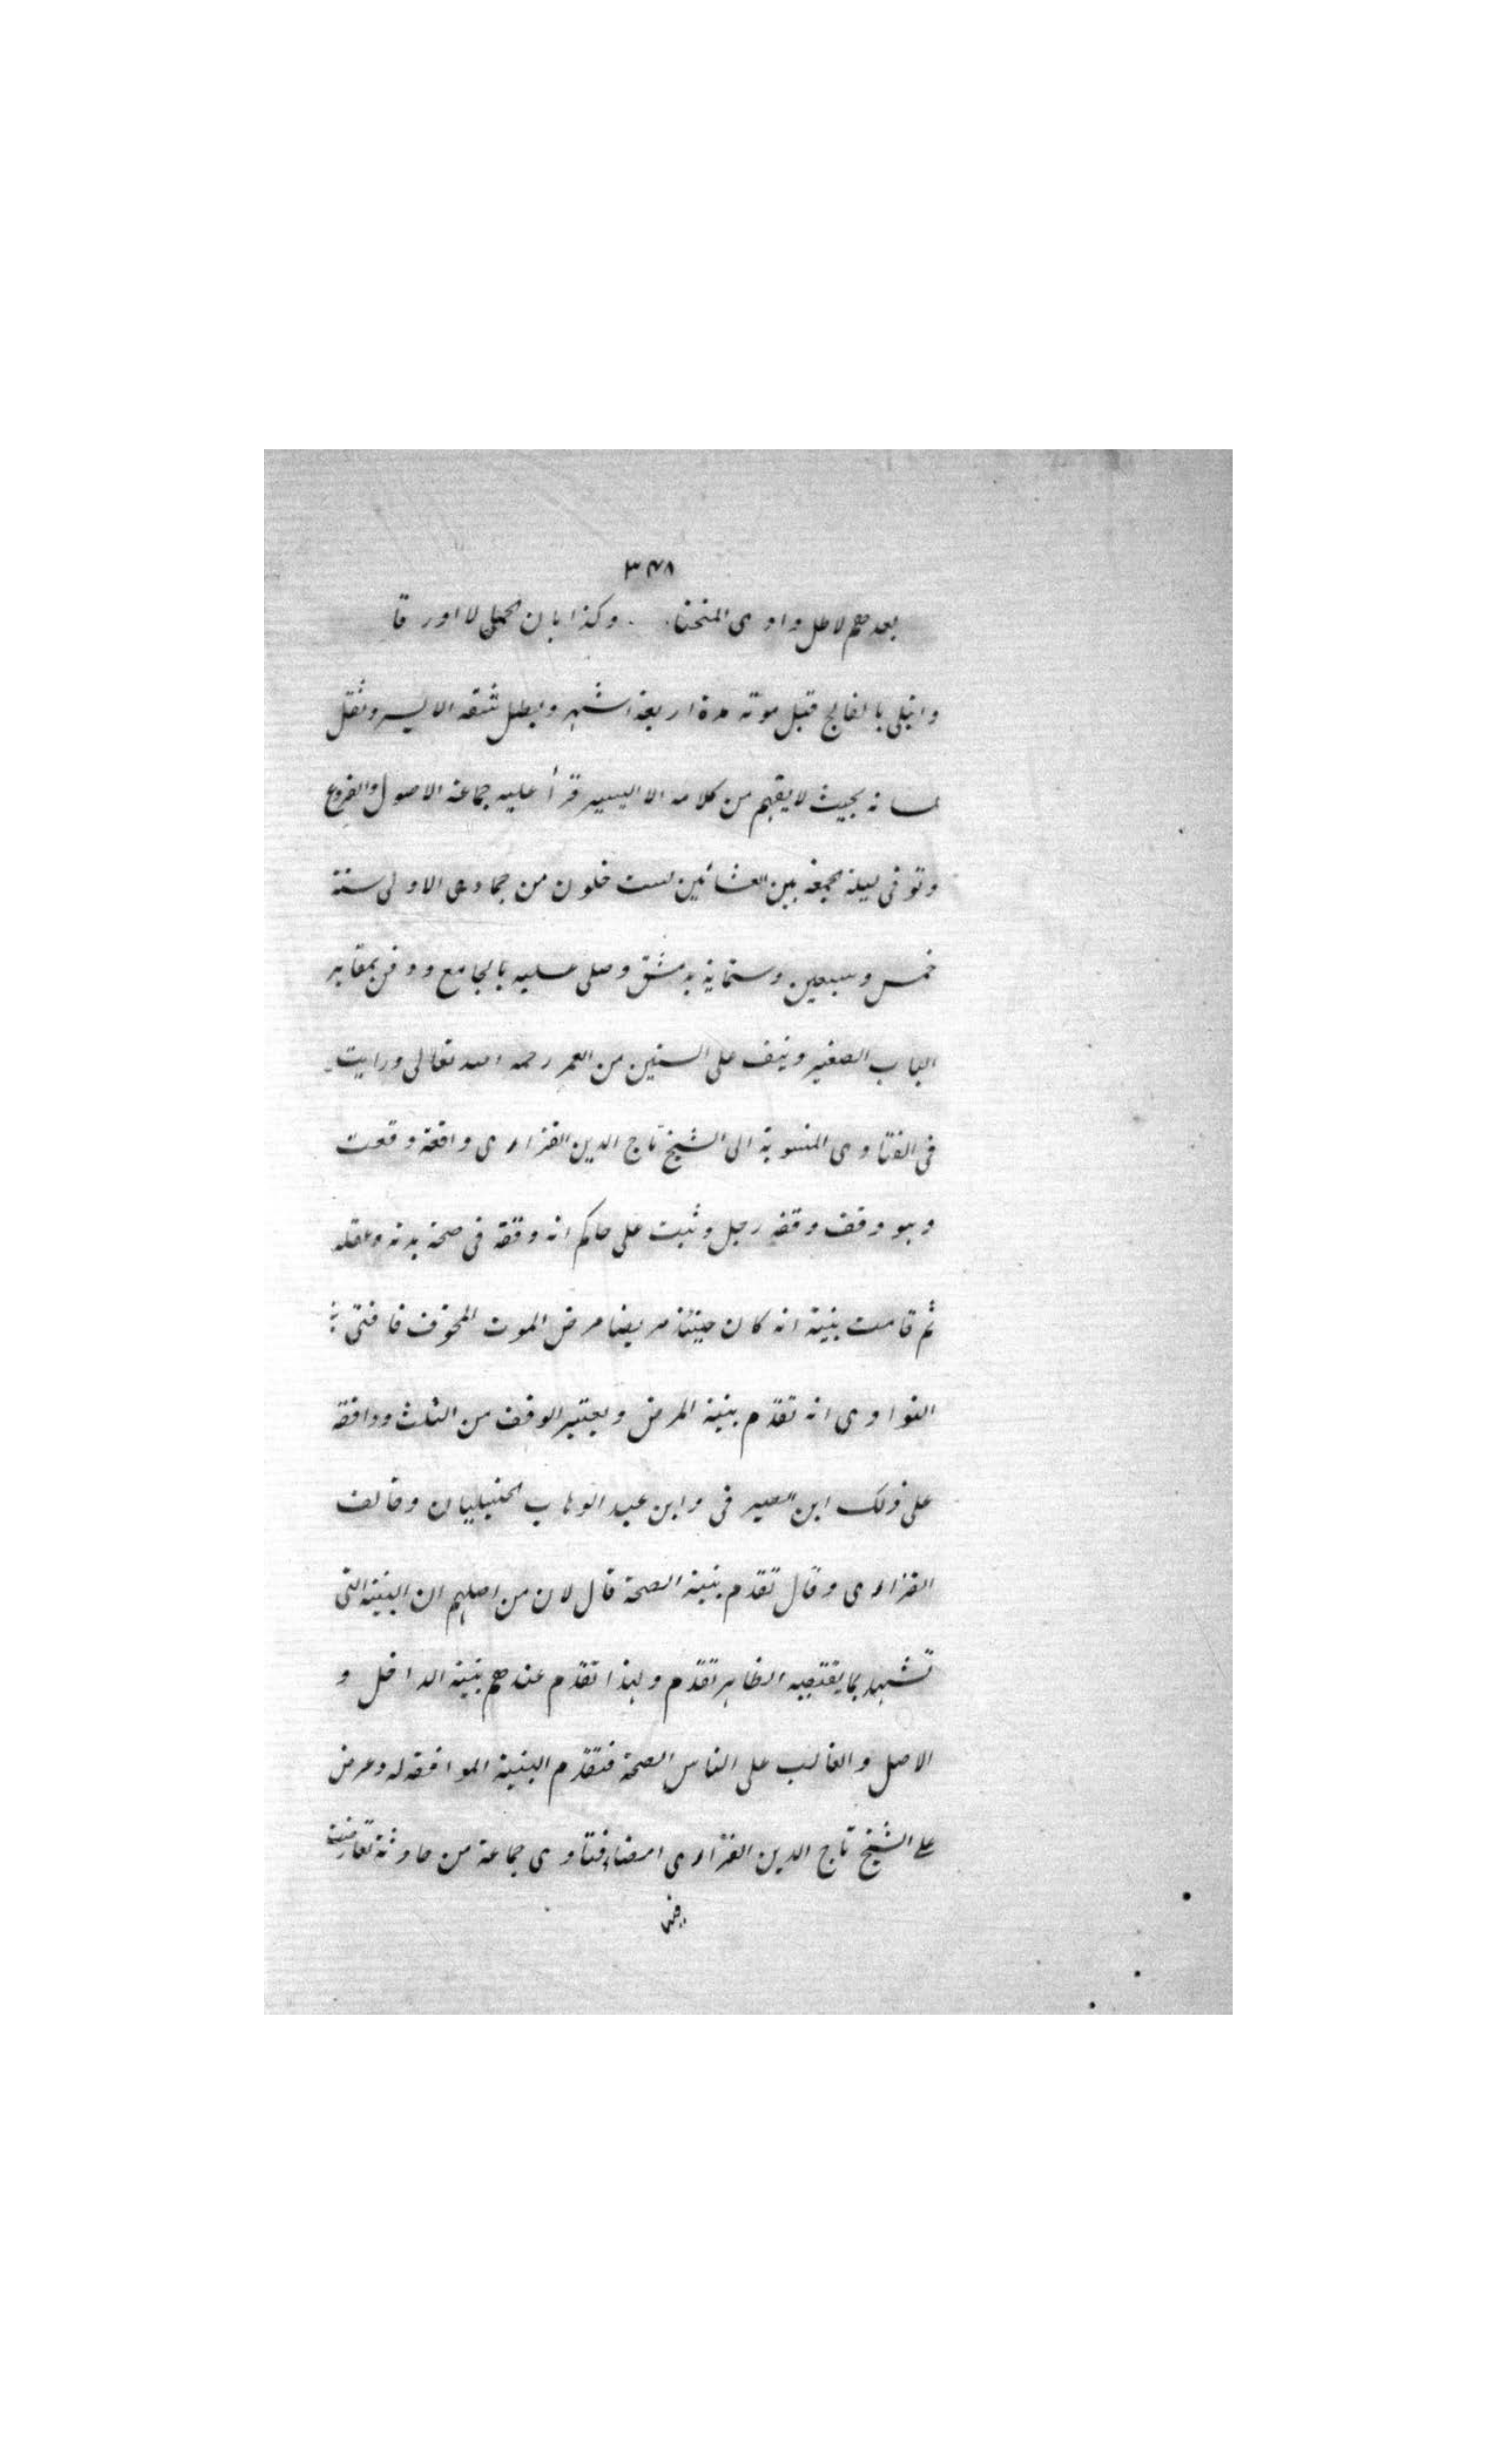 ٣٧٨
بعدهم لاطل وادى المنحنا . وكذا بان الحمى لا اورقا
وابتلى بالفالج قبل موته مدة اربعة اشهر وبطل شقه الايسر وثقل
لسانه بحيث لا يفهم من كلامه الا اليسير قرأ عليه جماعة الاصول والفروع
وتوفى ليلة الجمعة بين العشائين لست خلون من جمادى الاولى سنة
خمس وسبعين وستماية بدمشق وصلى عليه بالجامع ودفن بمقابر
الباب الصغير ونيف على الستين من العمر رحمه الله تعالى ورايت
فى الفتاوى المنسوبة الى الشيخ تاج الدين الفزارى واقعة وقعت
وهو وقف وقفه رجل وثبت على حاكم انه وقفه فى صحة بدنه وعقله
ثم قامت بينة انه كان حينئذ مريضا مرض الموت المخوف فافتى
النواوى انه تقدم بينة المرض ويعتبر الوقف من الثلث ووافقه
على ذلك ابن الصيرفى وابن عبد الوهاب الحنبليان وخالف
الفزارى وقال تقدم بينة الصحة قال لان من اصلهم ان البينة التى
تشهد بما يقتضيه الظاهر تقدم ولهذا تقدم عندهم بينة الداخل و
الاصل والغالب على الناس الصحة فتقدم البينة الموافقة له وعرض
على الشيخ تاج الدين الفزارى امضا فتاوى جماعة من حادثة تعارضت